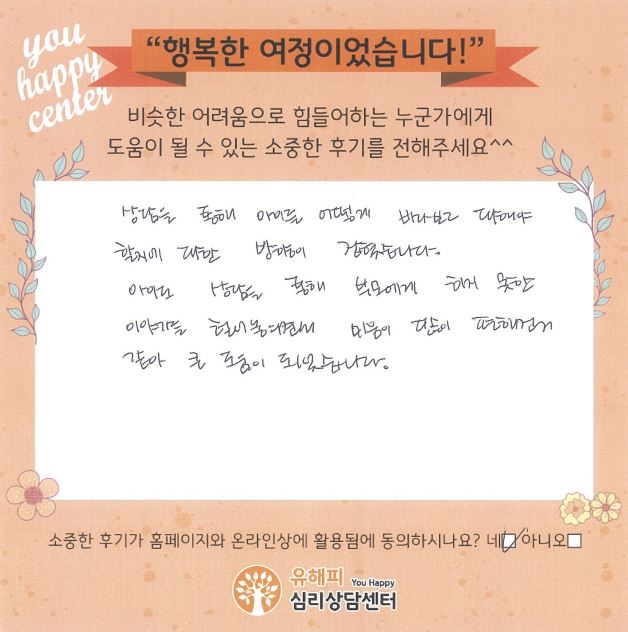 you
happy
center
“행복한 여정이었습니다!”
비슷한 어려움으로 힘들어하는 누군가에게
도움이 될 수 있는 소중한 후기를 전해주세요^^
상담을 통해 아이를 어떻게 바라보고 대해야
할지에 대한 방향이 잡혔습니다.
아이도 상담을 통해 부모에게 하지 못한
이야기를 하면서 마음이 많이 편해진거
같아 큰 도움이 되었습니다.
소중한 후기가 홈페이지와 온라인상에 활용됨에 동의하시나요? 네☑ 아니오□
유해피 You Happy
심리상담센터